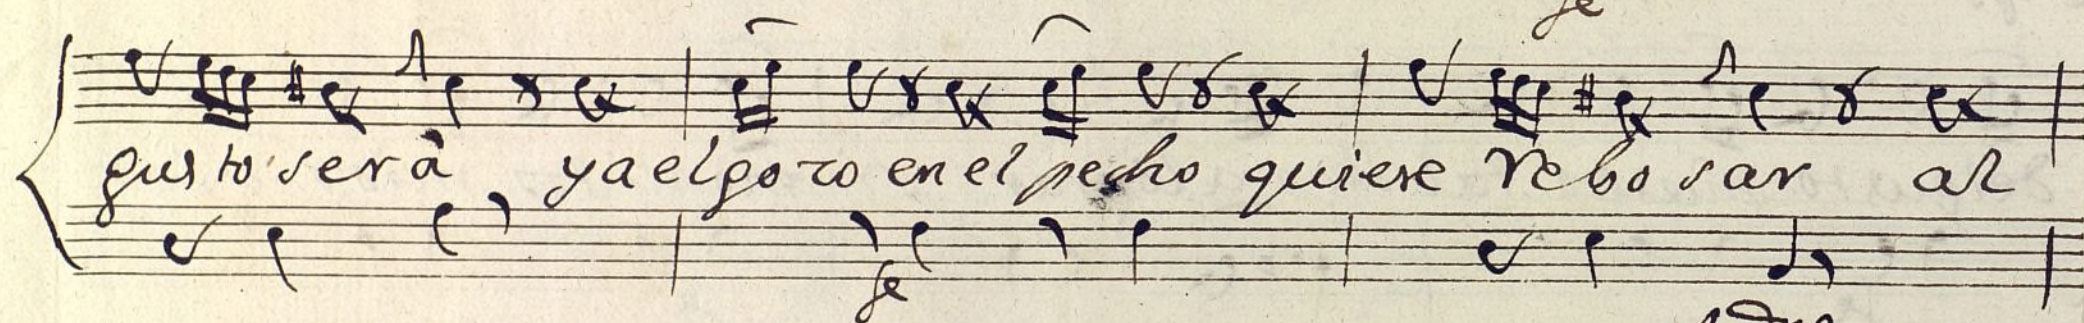 fe
gusto será ya el gozo en el pecho quiere rebosar al
fe